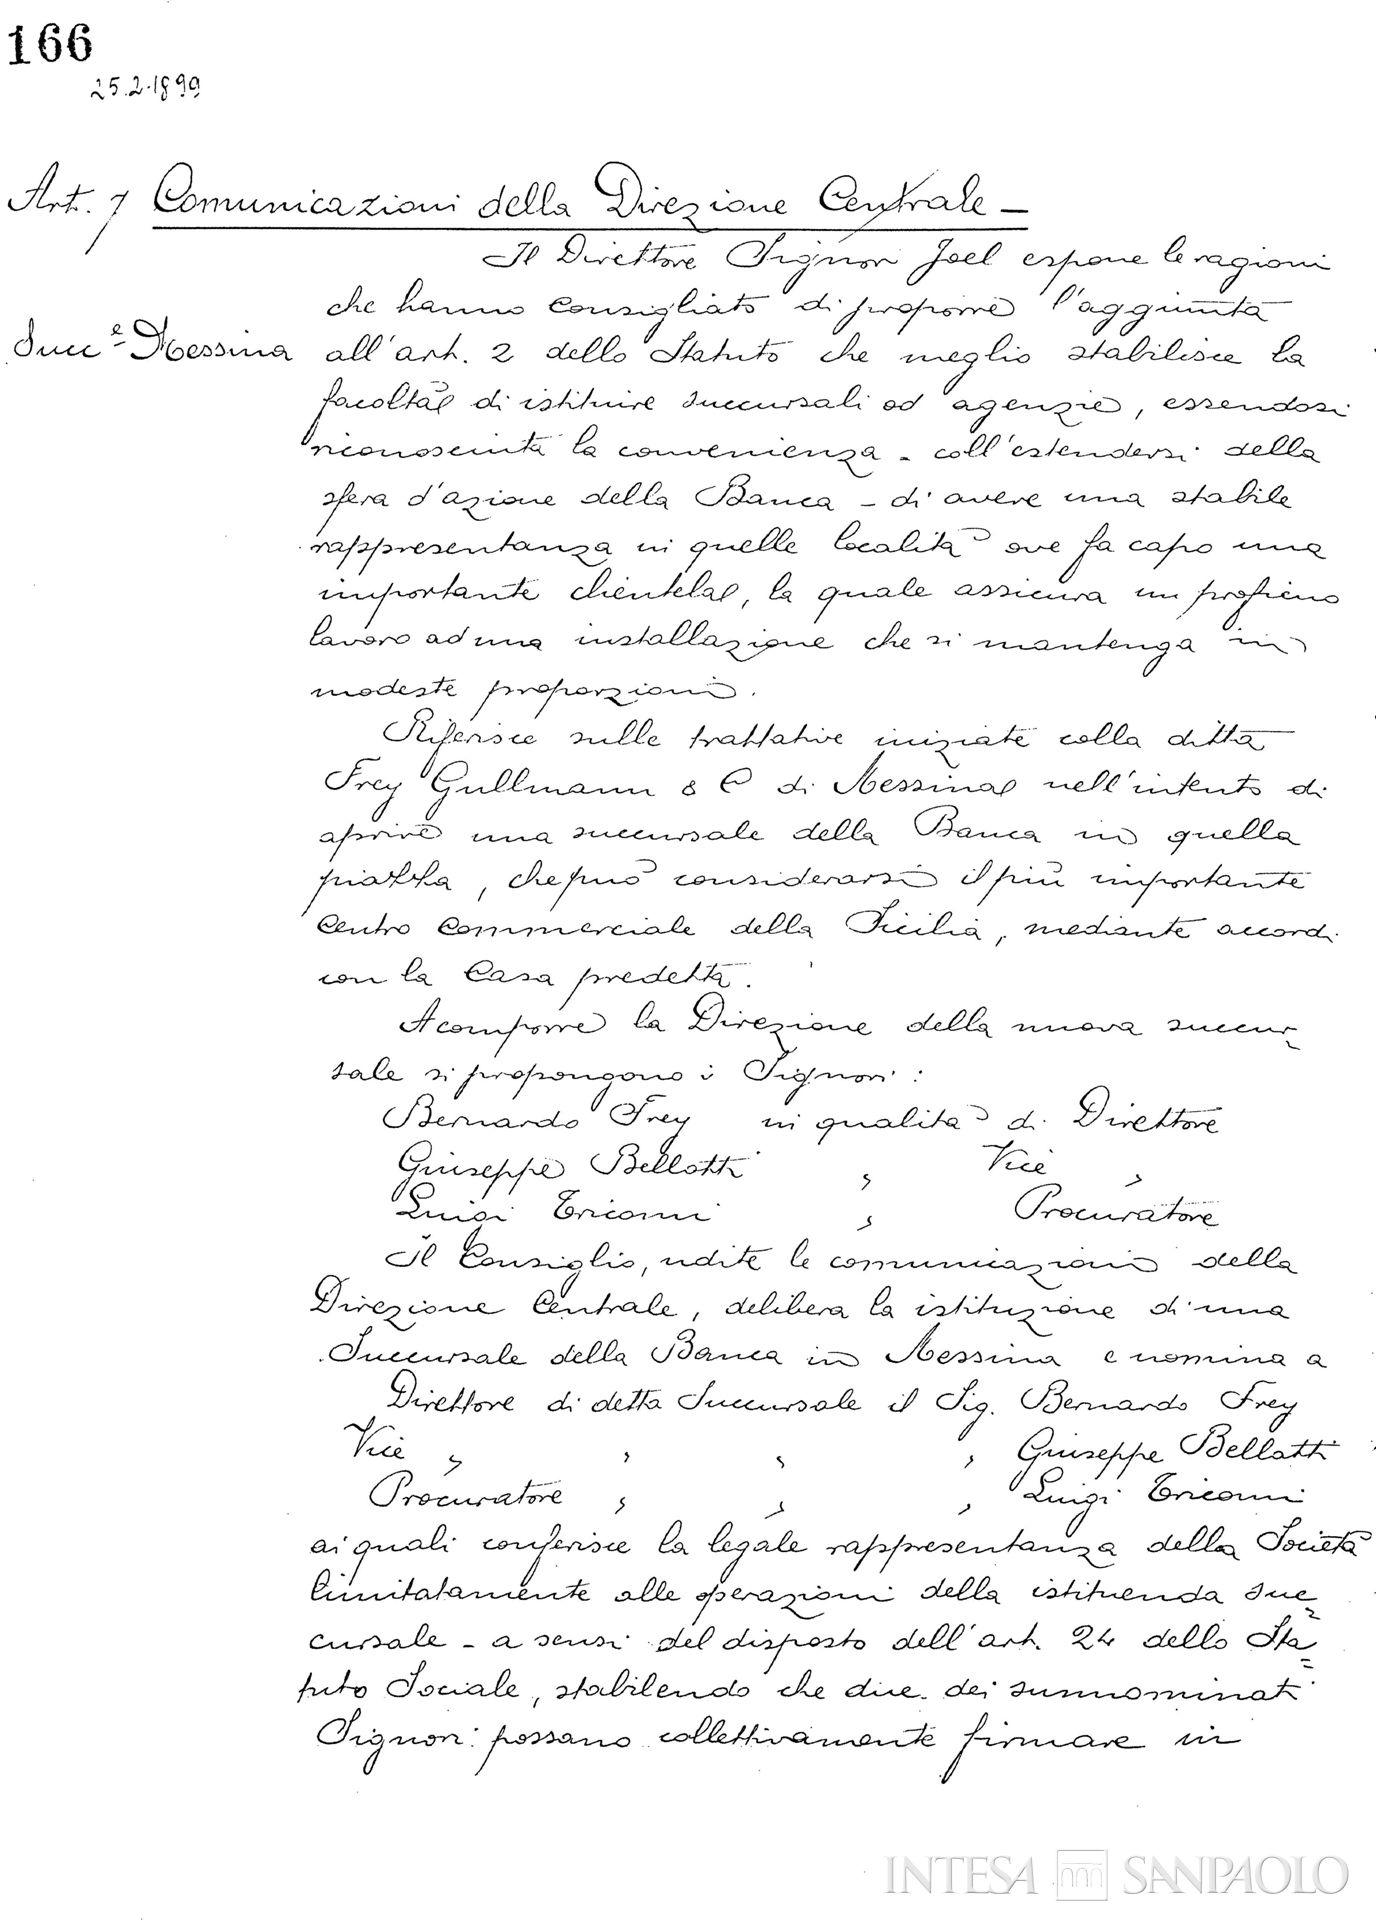 166
25.2.1899
Art. 7 Comunicazioni della Direzione Centrale -
Il Direttore Signor Joel espone le ragioni
che hanno consigliato di proporre l'aggiunta
Succe Messina all'art. 2 dello Statuto che meglio stabilisce la
facoltà di istituire succursali ed agenzie, essendosi
riconosciuta la convenienza - coll'estendersi della
sfera d'azione della Banca - di avere una stabile
rappresentanza in quelle località ove fa capo una
importante clientela, la quale assicura un proficuo
lavoro ad una installazione che si mantenga in
modeste proporzioni.
Riferisce sulle trattative iniziate colla ditta
Frey Gullmann & C di Messina nell'intento di
aprire una succursale della Banca in quella
piazza, che può considerarsi il più importante
centro commerciale della Sicilia, mediante accordi
con la Casa predetta.
A comporre la Direzione della nuova succur-
sale si propongono i Signori:
Bernardo Frey in qualità di Direttore
Giuseppe Bellotti " Vice "
Luigi Triconi " Procuratore
Il Consiglio, udite le comunicazioni della
Direzione Centrale, delibera la istituzione di una
Succursale della Banca in Messina e nomina a
Direttore di detta Succursale il Sig. Bernardo Frey
Vice " " " " Giuseppe Bellotti
Procuratore " " " Luigi Triconi
ai quali conferisce la legale rappresentanza della Società
limitatamente alle operazioni della istituenda suc=
cursale - a sensi del disposto dell'art. 24 dello Sta=
tuto Sociale, stabilendo che due dei sunnominati
Signori possano collettivamente firmare in
INTESA SANPAOLO